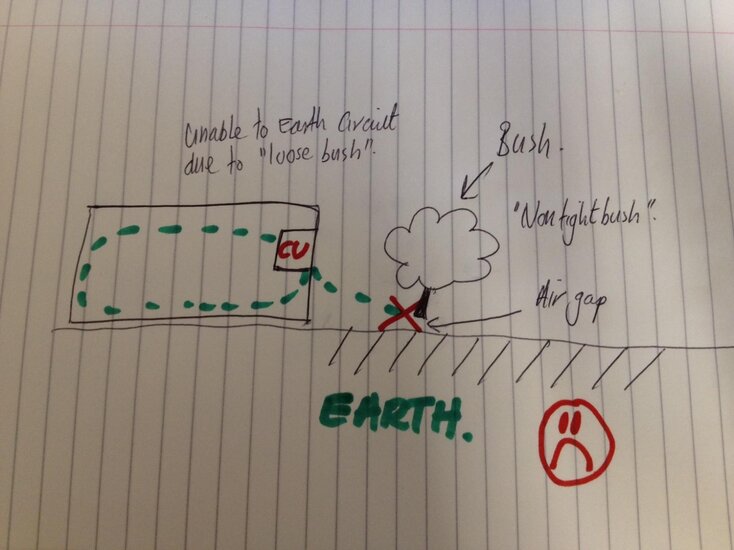 Unable to Earth Circuit
due to "loose bush".
Bush.
"Non tight bush".
CU
Air gap
EARTH.